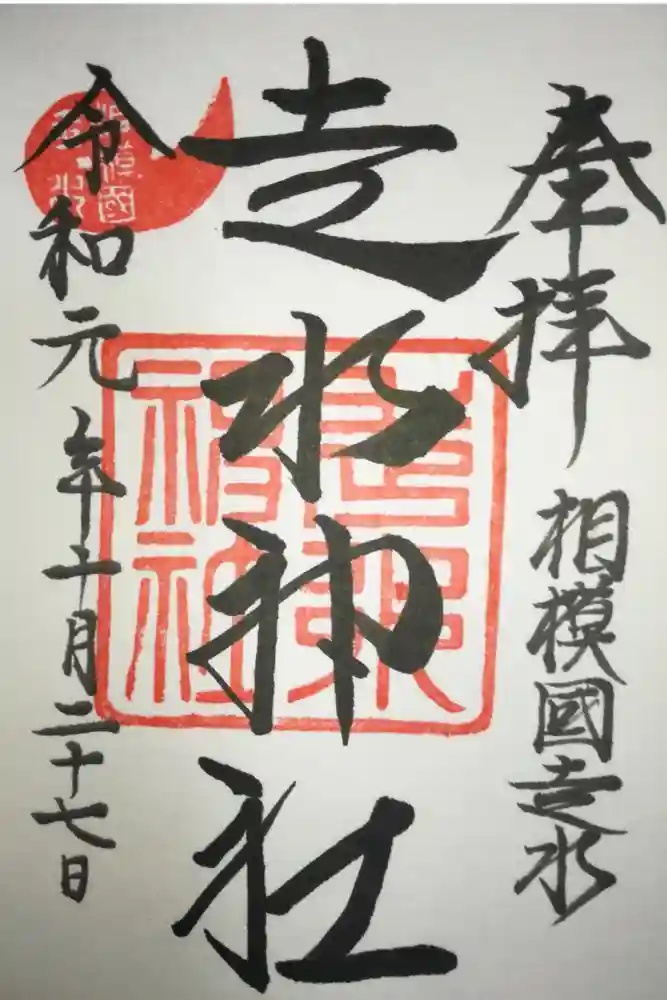 奉拝
相模國走水
走水神社
令和元年十月二十七日